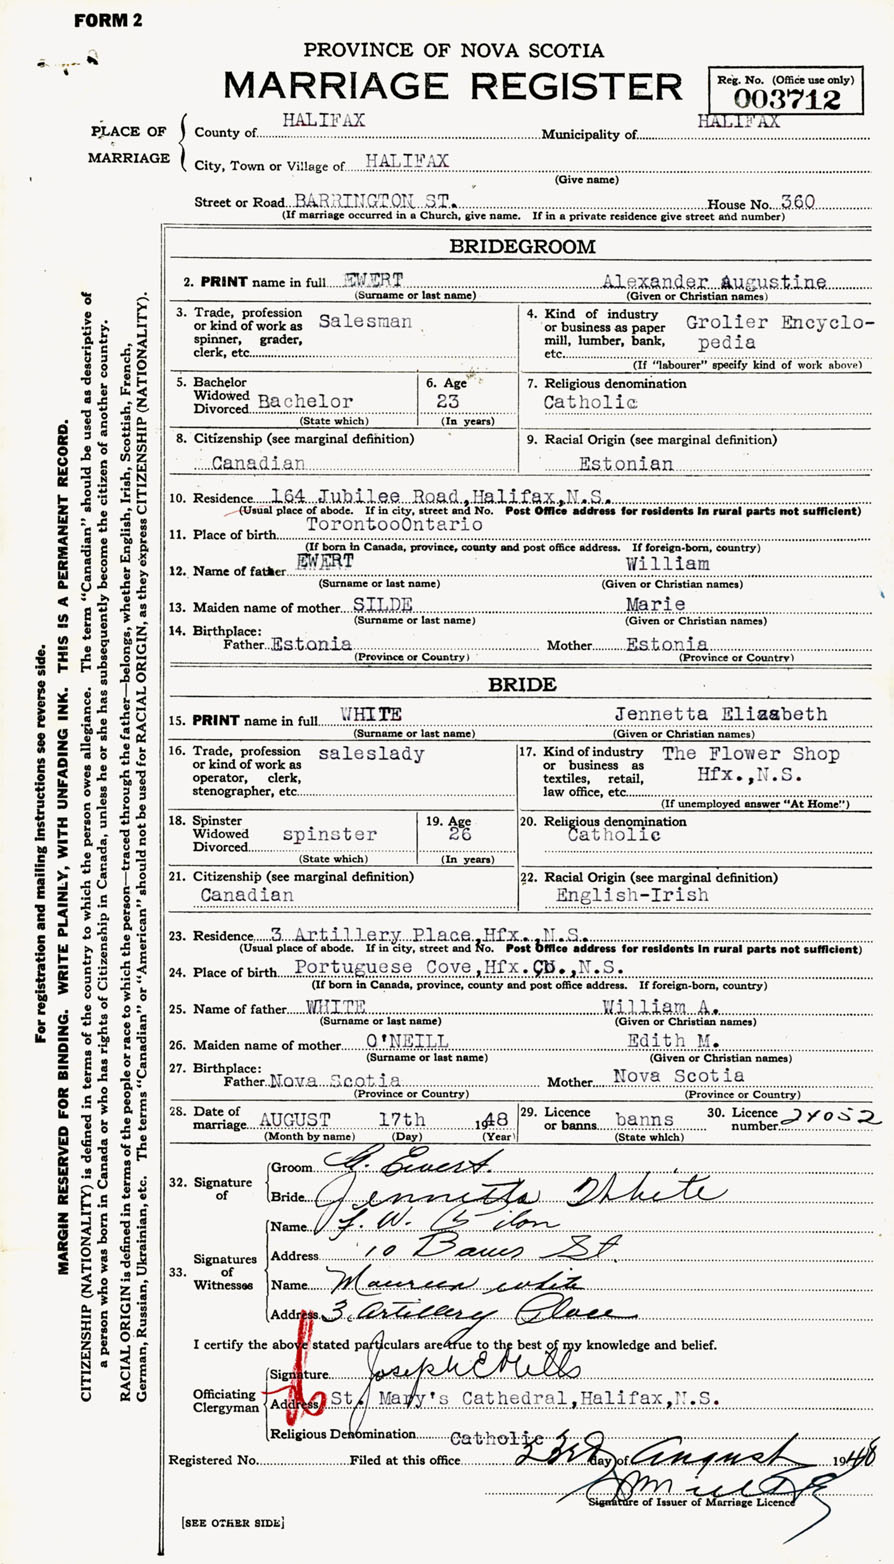 FORM 2
PROVINCE OF NOVA SCOTIA
MARRIAGE REGISTER
Reg. No. (Office use only)
003712
PLACE OF MARRIAGE
County of HALIFAX Municipality of HALIFAX
City, Town or Village of HALIFAX
(Give name)
Street or Road BARRINGTON ST. House No. 360
(If marriage occurred in a Church, give name. If in a private residence give street and number)
BRIDEGROOM
2. PRINT name in full EWERT Alexander Augustine
(Surname or last name) (Given or Christian names)
3. Trade, profession or kind of work as spinner, grader, clerk, etc. Salesman
4. Kind of industry or business as paper mill, lumber, bank, etc. Grolier Encyclo-
pedia
(If "labourer" specify kind of work above)
5. Bachelor Widowed Divorced Bachelor
(State which)
6. Age 23
(In years)
7. Religious denomination
Catholic
8. Citizenship (see marginal definition)
Canadian
9. Racial Origin (see marginal definition)
Estonian
10. Residence 164 Jubilee Road,Halifax,N.S.
(Usual place of abode. If in city, street and No. Post Office address for residents in rural parts not sufficient)
11. Place of birth TorontooOntario
(If born in Canada, province, county and post office address. If foreign-born, country)
12. Name of father EWERT William
(Surname or last name) (Given or Christian names)
13. Maiden name of mother SILDE Marie
(Surname or last name) (Given or Christian names)
14. Birthplace:
Father Estonia Mother Estonia
(Province or Country) (Province or Country)
BRIDE
15. PRINT name in full WHITE Jennetta Elizabeth
(Surname or last name) (Given or Christian names)
16. Trade, profession or kind of work as operator, clerk, stenographer, etc. saleslady
17. Kind of industry or business as textiles, retail, law office, etc. The Flower Shop
Hfx.,N.S.
(If unemployed answer "At Home")
18. Spinster Widowed Divorced spinster
(State which)
19. Age 26
(In years)
20. Religious denomination
Catholic
21. Citizenship (see marginal definition)
Canadian
22. Racial Origin (see marginal definition)
English-Irish
23. Residence 3 Artillery Place,Hfx.,N.S.
(Usual place of abode. If in city, street and No. Post Office address for residents in rural parts not sufficient)
24. Place of birth Portuguese Cove,Hfx.CO.,N.S.
(If born in Canada, province, county and post office address. If foreign-born, country)
25. Name of father WHITE William A.
(Surname or last name) (Given or Christian names)
26. Maiden name of mother O'NEILL Edith M.
(Surname or last name) (Given or Christian names)
27. Birthplace:
Father Nova Scotia Mother Nova Scotia
(Province or Country) (Province or Country)
28. Date of marriage AUGUST 17th 1948
(Month by name) (Day) (Year)
29. Licence or banns banns
(State which)
30. Licence number 24052
32. Signature of
Groom A. Ewert.
Bride Jennetta White
33. Signatures of Witnesses
Name F. W.
Address 10 St.
Name Maureen White
Address 3 Artillery Place
I certify the above stated particulars are true to the best of my knowledge and belief.
Officiating Clergyman
Signature Joseph E Mills
Address St. Mary's Cathedral,Halifax,N.S.
Religious Denomination Catholic
Registered No. Filed at this office 23rd day of August 1948
Signature of Issuer of Marriage Licence
[SEE OTHER SIDE]
For registration and mailing instructions see reverse side.
MARGIN RESERVED FOR BINDING. WRITE PLAINLY, WITH UNFADING INK. THIS IS A PERMANENT RECORD.
CITIZENSHIP (NATIONALITY) is defined in terms of the country to which the person owes allegiance. The term "Canadian" should be used as descriptive of
a person who was born in Canada or who has rights of Citizenship in Canada, unless he or she has subsequently become the citizen of another country.
RACIAL ORIGIN is defined in terms of the people or race to which the person—traced through the father—belongs, whether English, Irish, Scottish, French,
German, Russian, Ukrainian, etc. The terms "Canadian" or "American" should not be used for RACIAL ORIGIN, as they express CITIZENSHIP (NATIONALITY).